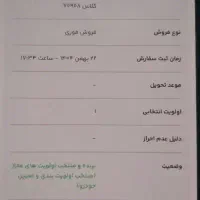 کلاس ۷۰۹۶۸
نوع فروش
فروش فوری
زمان ثبت سفارش
۲۶ بهمن ۱۴۰۴ - ساعت ۱۷:۳۴
موعد تحویل
-
اولویت انتخابی
۱
دلیل عدم احراز
-
وضعیت
برنده و منتخب اولویت های مجاز
(منتخب اولویت بندی و تعیین
خودرو)